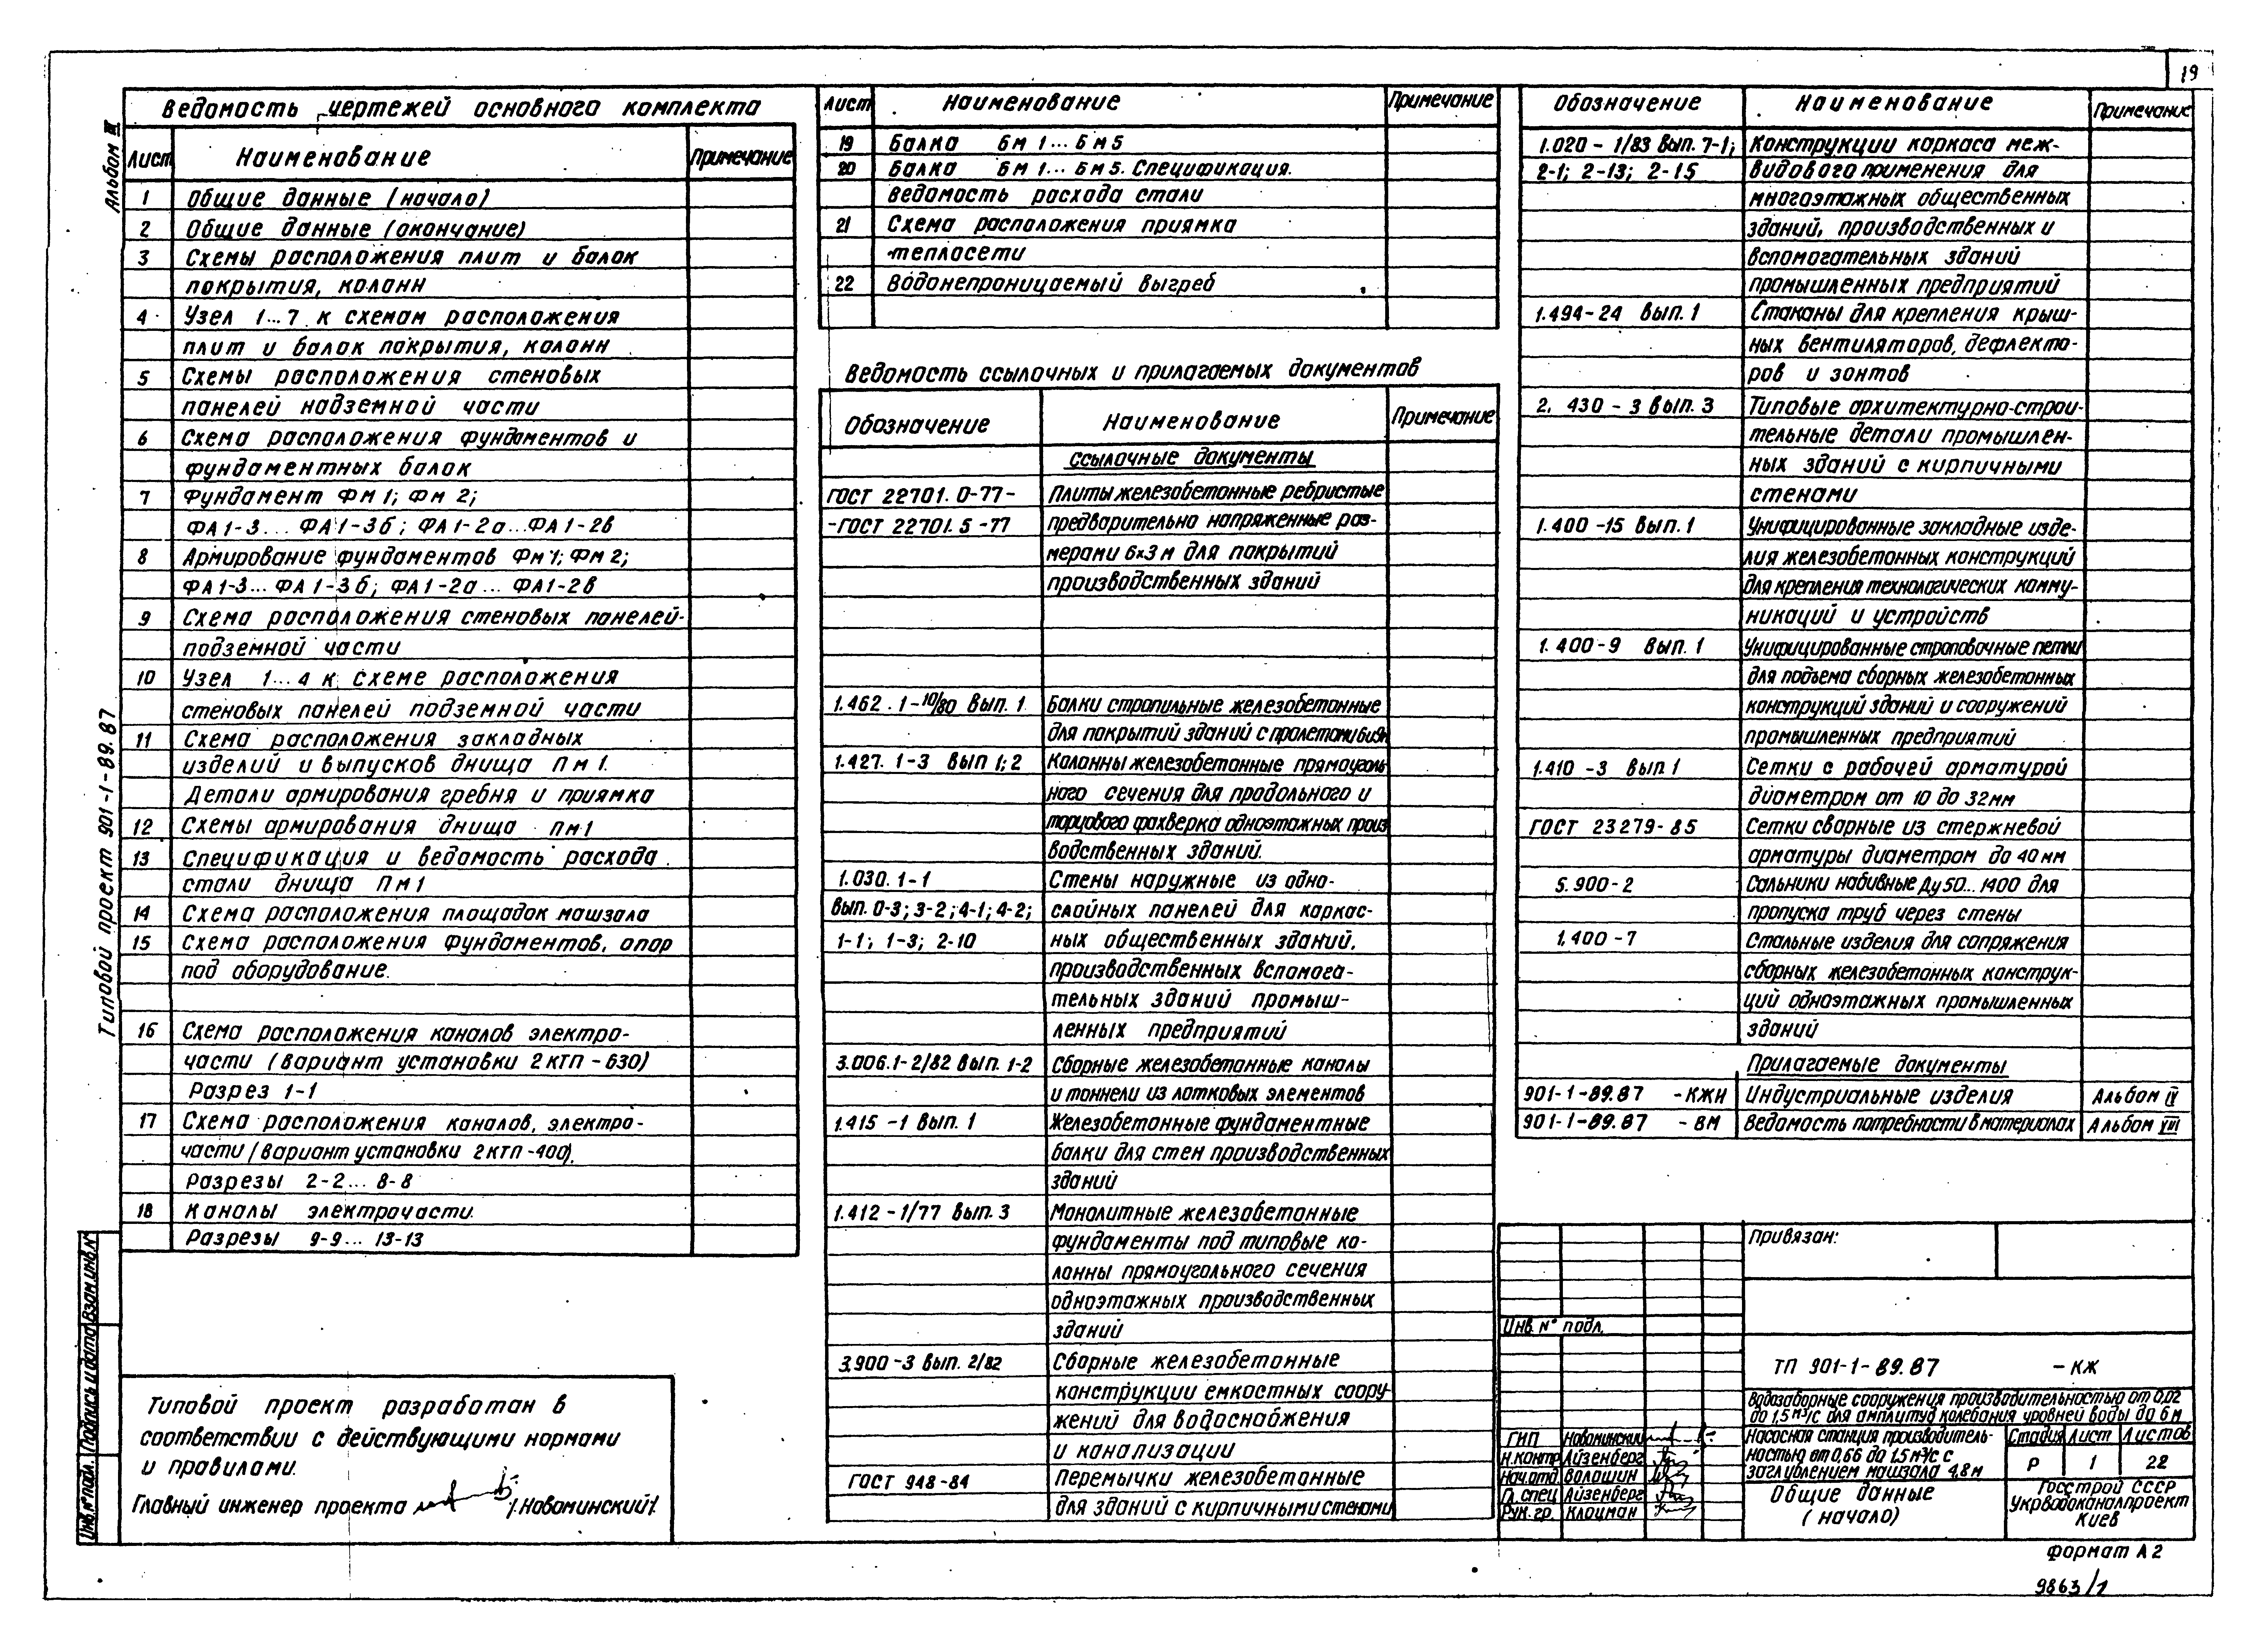 19
Альбом III
Типовой проект 901-1-89.87
Ведомость чертежей основного комплекта
Лист Наименование Примечание
1 Общие данные (начало)
2 Общие данные (окончание)
3 Схемы расположения плит и балок
покрытия, колонн
4 Узел 1...7 к схемам расположения
плит и балок покрытия, колонн
5 Схемы расположения стеновых
панелей надземной части
6 Схема расположения фундаментов и
фундаментных балок
7 Фундамент Фм 1; Фм 2;
ФА1-3... ФА1-3б; ФА1-2а...ФА1-2в
8 Армирование фундаментов Фм 1; Фм 2;
ФА1-3... ФА1-3б; ФА1-2а... ФА1-2в
9 Схема расположения стеновых панелей
подземной части
10 Узел 1...4 к схеме расположения
стеновых панелей подземной части
11 Схема расположения закладных
изделий и выпусков днища Пм1.
Детали армирования гребня и приямка
12 Схемы армирования днища Пм1
13 Спецификация и ведомость расхода
стали днища Пм1
14 Схема расположения площадок машзала
15 Схема расположения фундаментов, опор
под оборудование.
16 Схема расположения каналов электро-
части (вариант установки 2КТП-630)
Разрез 1-1
17 Схема расположения каналов, электро-
части (вариант установки 2КТП-400).
Разрезы 2-2... 8-8
18 Каналы электрочасти.
Разрезы 9-9... 13-13
Типовой проект разработан в
соответствии с действующими нормами
и правилами.
Главный инженер проекта /Новоминский/
Инв.№подл. Подпись и дата Взам.инв.№
Лист Наименование Примечание
19 Балка Бм 1... Бм5
20 Балка Бм 1... Бм5. Спецификация.
Ведомость расхода стали
21 Схема расположения приямка
теплосети
22 Водонепроницаемый выгреб
Ведомость ссылочных и прилагаемых документов
Обозначение Наименование Примечание
Ссылочные документы
ГОСТ 22701.0-77- Плиты железобетонные ребристые
-ГОСТ 22701.5-77 предварительно напряженные раз-
мерами 6х3м для покрытий
производственных зданий
1.462.1-10/80 Вып. 1 Балки стропильные железобетонные
для покрытий зданий с пролетами 6и9м
1.427.1-3 Вып 1; 2 Колонны железобетонные прямоуголь
ного сечения для продольного и
торцового фахверка одноэтажных произ
водственных зданий.
1.030.1-1 Стены наружные из одно-
Вып. 0-3; 3-2; 4-1; 4-2; слойных панелей для каркас-
1-1; 1-3; 2-10 ных общественных зданий,
производственных вспомога-
тельных зданий промыш-
ленных предприятий
3.006.1-2/82 Вып. 1-2 Сборные железобетонные каналы
и тоннели из лотковых элементов
1.415-1 Вып. 1 Железобетонные фундаментные
балки для стен производственных
зданий
1.412-1/77 Вып. 3 Монолитные железобетонные
фундаменты под типовые ко-
лонны прямоугольного сечения
одноэтажных производственных
зданий
3.900-3 Вып. 2/82 Сборные железобетонные
конструкции емкостных соору-
жений для водоснабжения
и канализации
ГОСТ 948-84 Перемычки железобетонные
для зданий с кирпичными стенами
Обозначение Наименование Примечание
1.020-1/83 Вып. 7-1; Конструкции каркаса меж-
2-1; 2-13; 2-15 видового применения для
многоэтажных общественных
зданий, производственных и
вспомогательных зданий
промышленных предприятий
1.494-24 Вып. 1 Стаканы для крепления крыш-
ных вентиляторов, дефлекто-
ров и зонтов
2.430-3 Вып. 3 Типовые архитектурно-строи-
тельные детали промышлен-
ных зданий с кирпичными
стенами
1.400-15 Вып. 1 Унифицированные закладные изде-
лия железобетонных конструкций
для крепления технологических комму-
никаций и устройств
1.400-9 Вып. 1 Унифицированные строповочные петли
для подъема сборных железобетонных
конструкций зданий и сооружений
промышленных предприятий
1.410-3 Вып 1 Сетки с рабочей арматурой
диаметром от 10 до 32мм
ГОСТ 23279-85 Сетки сварные из стержневой
арматуры диаметром до 40мм
5.900-2 Сальники набивные Ду50...1400 для
пропуска труб через стены
1.400-7 Стальные изделия для сопряжения
сборных железобетонных конструк-
ций одноэтажных промышленных
зданий
Прилагаемые документы
901-1-89.87 -КЖИ Индустриальные изделия Альбом IV
901-1-89.87 -ВМ Ведомость потребности в материалах Альбом VIII
Привязан:
Инв. № подл.
ТП 901-1-89.87 -КЖ
Водозаборные сооружения производительностью от 0,02
до 1,5м³/с для амплитуд колебания уровней воды до 6м
ГИП Новоминский
Н.контр Айзенберг
Нач.отд Волошин
Гл.спец Айзенберг
Рук.гр. Клоцман
Насосная станция производитель-
ностью от 0,66 до 1,5м³/с с
заглублением машзала 4,8м
Стадия Лист Листов
Р 1 22
Общие данные
(начало)
Госстрой СССР
Укрводоканалпроект
Киев
Формат А2
9863/1